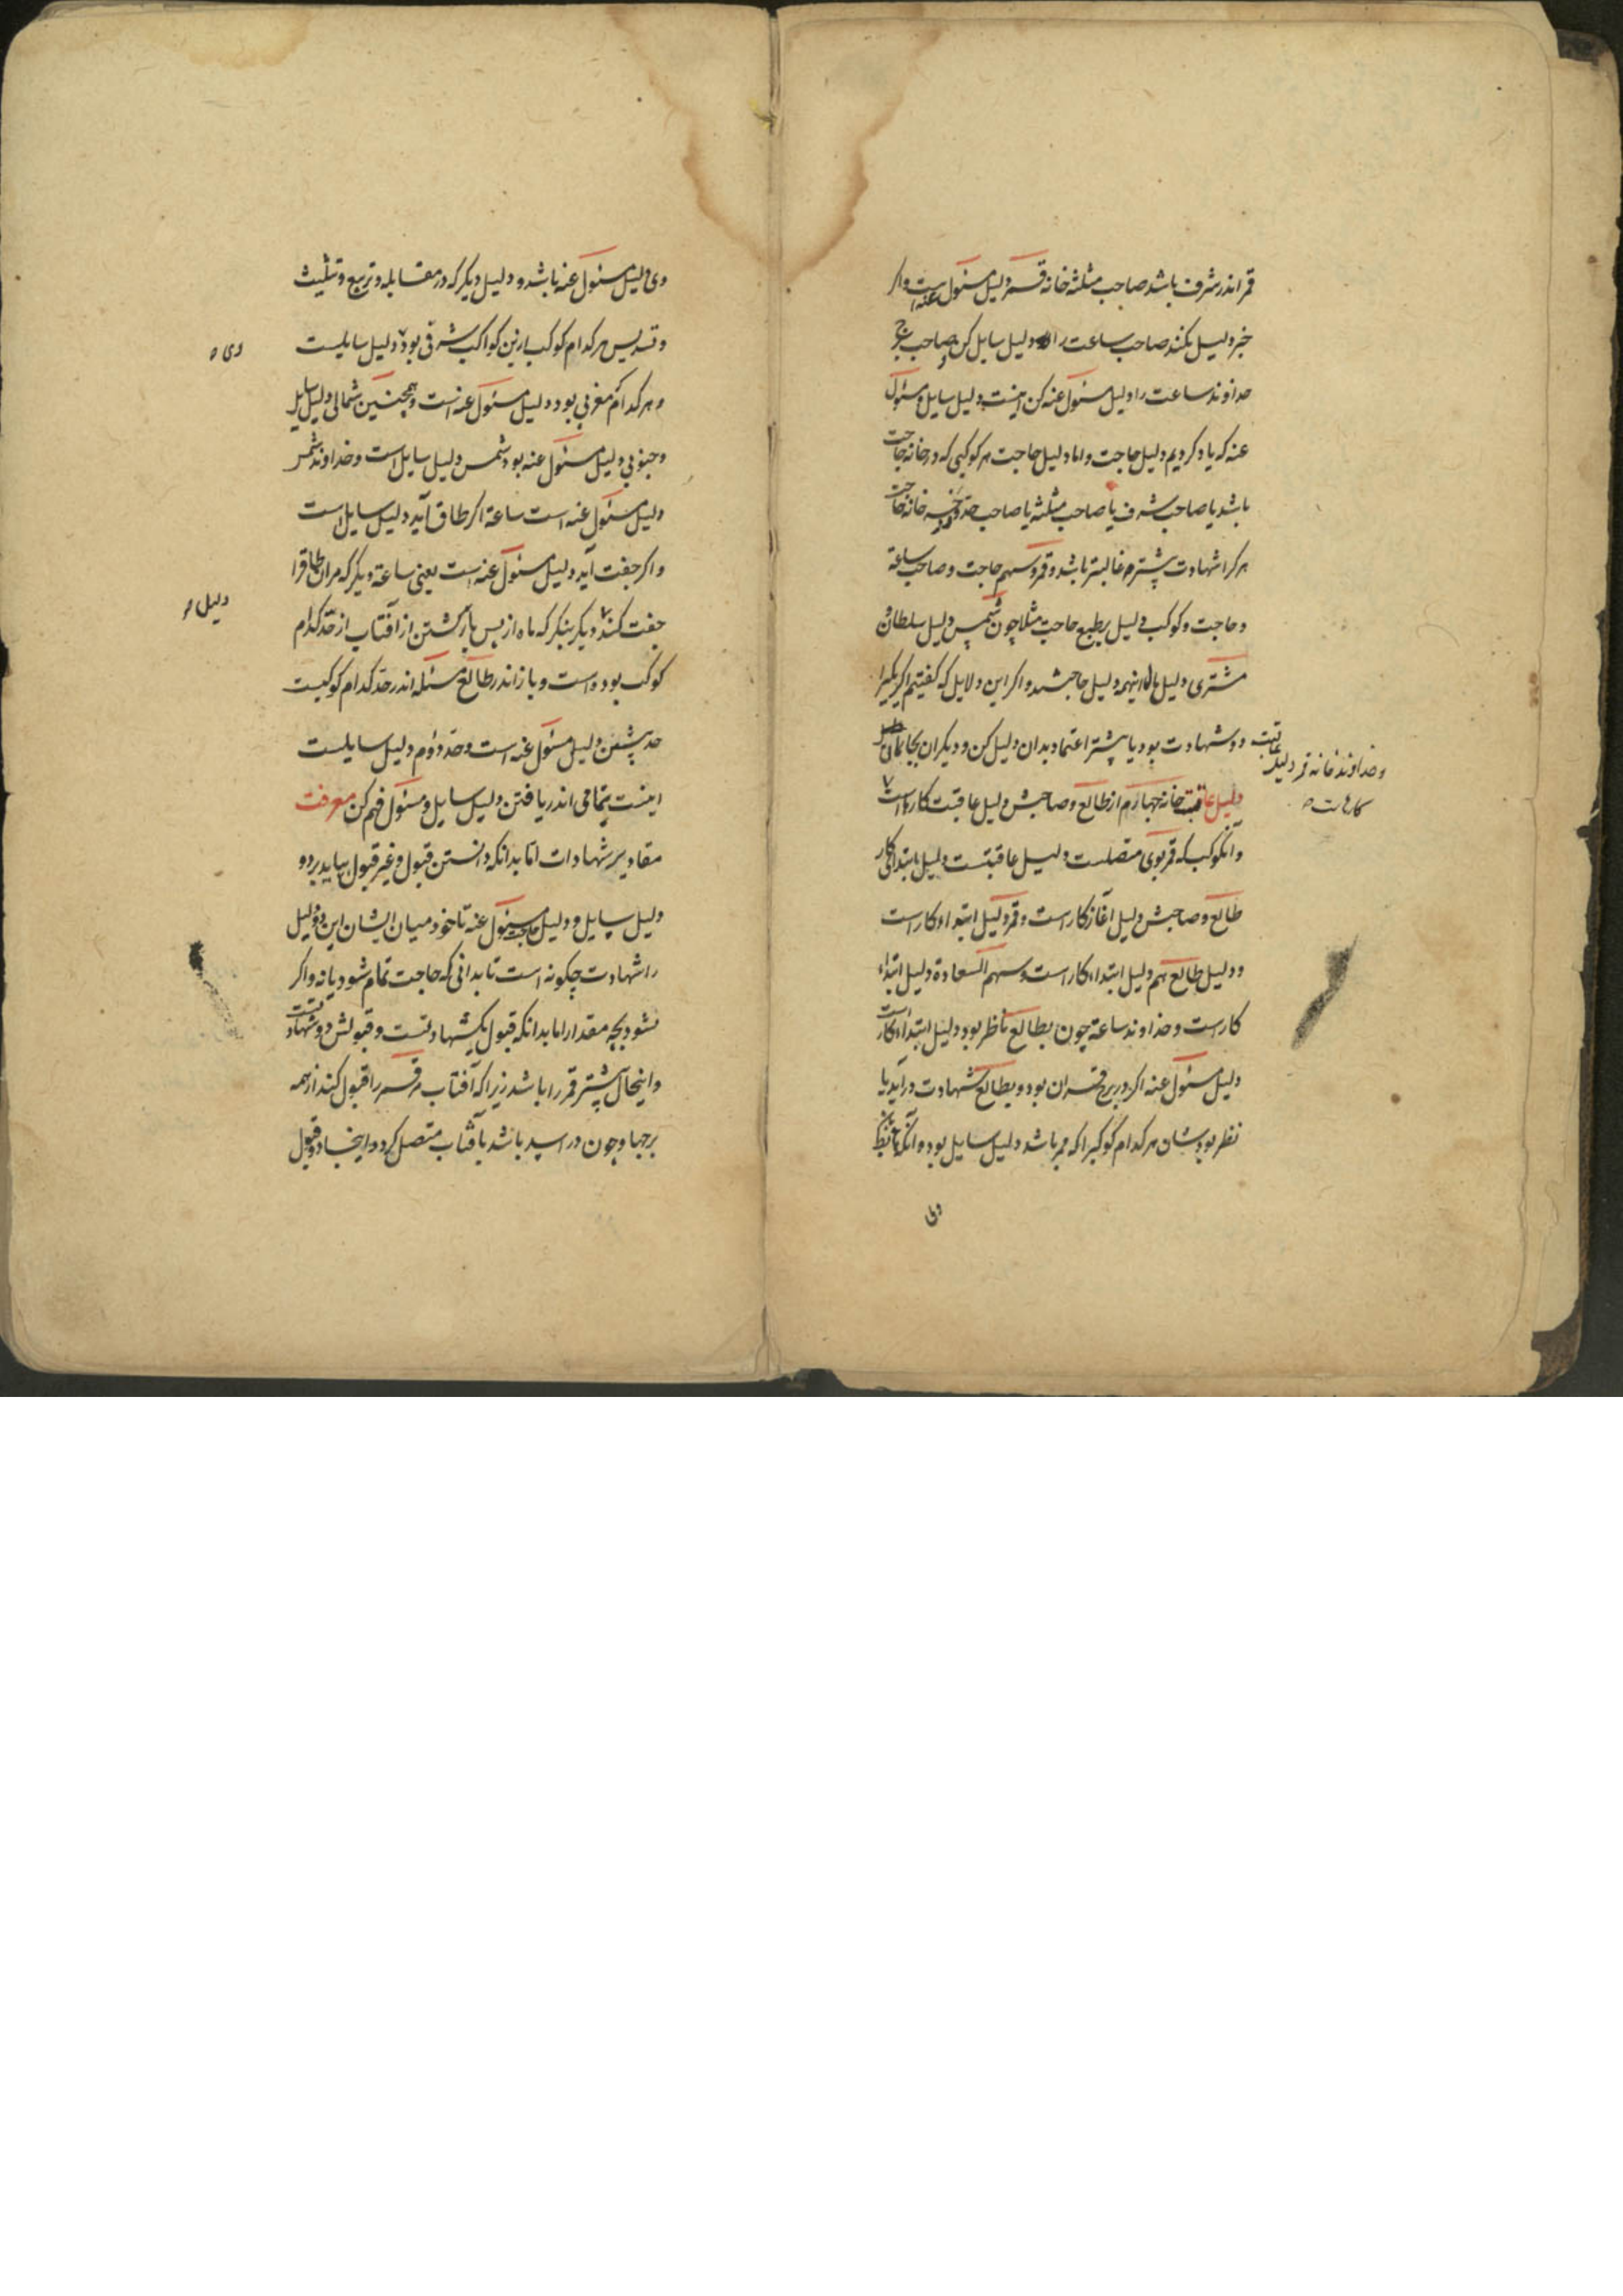 قمر اندر شرف باشد صاحب مثلثه خانه قمر دلیل مسئول عنه است و اگر
خبر دلیل نکند صاحب ساعت را دلیل سایل کن و صاحب برج
خداوند ساعت را دلیل مسئول عنه کن اینست دلیل سایل و مسئول
عنه که یاد کردیم دلیل حاجت و اما دلیل حاجت هر کوکبی که در خانه حاجت
باشد یا صاحب شرف یا صاحب مثلثه یا صاحب حد و خانه حاجت
هر کرا شهادت بیشتر و غالبتر باشد و قمر و سهم حاجت و صاحب ساعة
و حاجت و کوکب دلیل بطبع حاجت مثلا چون شمس دلیل سلطان و
مشتری دلیل مال اینهمه دلیل حاجت و اکر این دلایل که کفتیم اکر یکیرا
دو شهادت بود یا بیشتر اعتماد بدان دلیل کن و دیکران بجا
و خداوند خانه قمر دلیل عاقبت
کارهاست
دلیل عاقبت خانه چهارم از طالع و صاحبش دلیل عاقبت کار است
و آنکوکب که قمر بوی متصلست دلیل عاقبتست دلیل ابتدای کار
طالع و صاحبش دلیل آغاز کار است و قمر دلیل ابتداء کار است
و دلیل طالع هم دلیل ابتداء کار است و سهم السعادة دلیل ابتداء
کار است و خداوند ساعة چون بطالع ناظر بود دلیل ابتداء کار است
دلیل مسئول عنه اکر در برج قران بود و بطالع شهادت در آید یا
نظر بود شان هر کدام کوکب را که باشد دلیل سایل بود و آنکه
وی
وی دلیل مسئول عنه باشد و دلیل دیکر که در مقابله و تربیع و تثلیث
و تسدیس هر کدام کوکب ازین کواکب شرقی بود دلیل سایلست
وی
و هر کدام مغربی بود دلیل مسئول عنه است و همچنین شمالی دلیل سایل
و جنوبی دلیل مسئول عنه بود شمس دلیل سایل است و خداوند شمس
دلیل مسئول عنه است ساعة اکر طاق آید دلیل سایل است
و اکر جفت آید دلیل مسئول عنه است یعنی ساعة دیکر که مران طاقرا
دلیل
جفت کند دیکر بنکر که ماه از پس بازکشتن از آفتاب از حد کدام
کوکب بوده است و باز اندر طالع مسئله اندر حد کدام کوکبست
حد پیشین دلیل مسئول عنه است و حد دوم دلیل سایلست
اینست تمامی اندر یافتن دلیل سایل و مسئول فهم کن معرفت
مقادیر شهادات اما بدانکه دانستن قبول و غیر قبول بباید بر دو
دلیل سایل و دلیل مسئول عنه تا خود میان ایشان این دو دلیل
را شهادت چکونه است تا بدانی که حاجت تمام شود یا نه و اکر
شود بچه مقدار اما بدانکه قبول یکشهادتست و قبولش دو شهادتست
و اینحال بیشتر قمر را باشد زیرا که آفتاب مر قمر را قبول کند از همه
برجها و چون در اسد باشد بآفتاب متصل کردد اینجا دو قبول